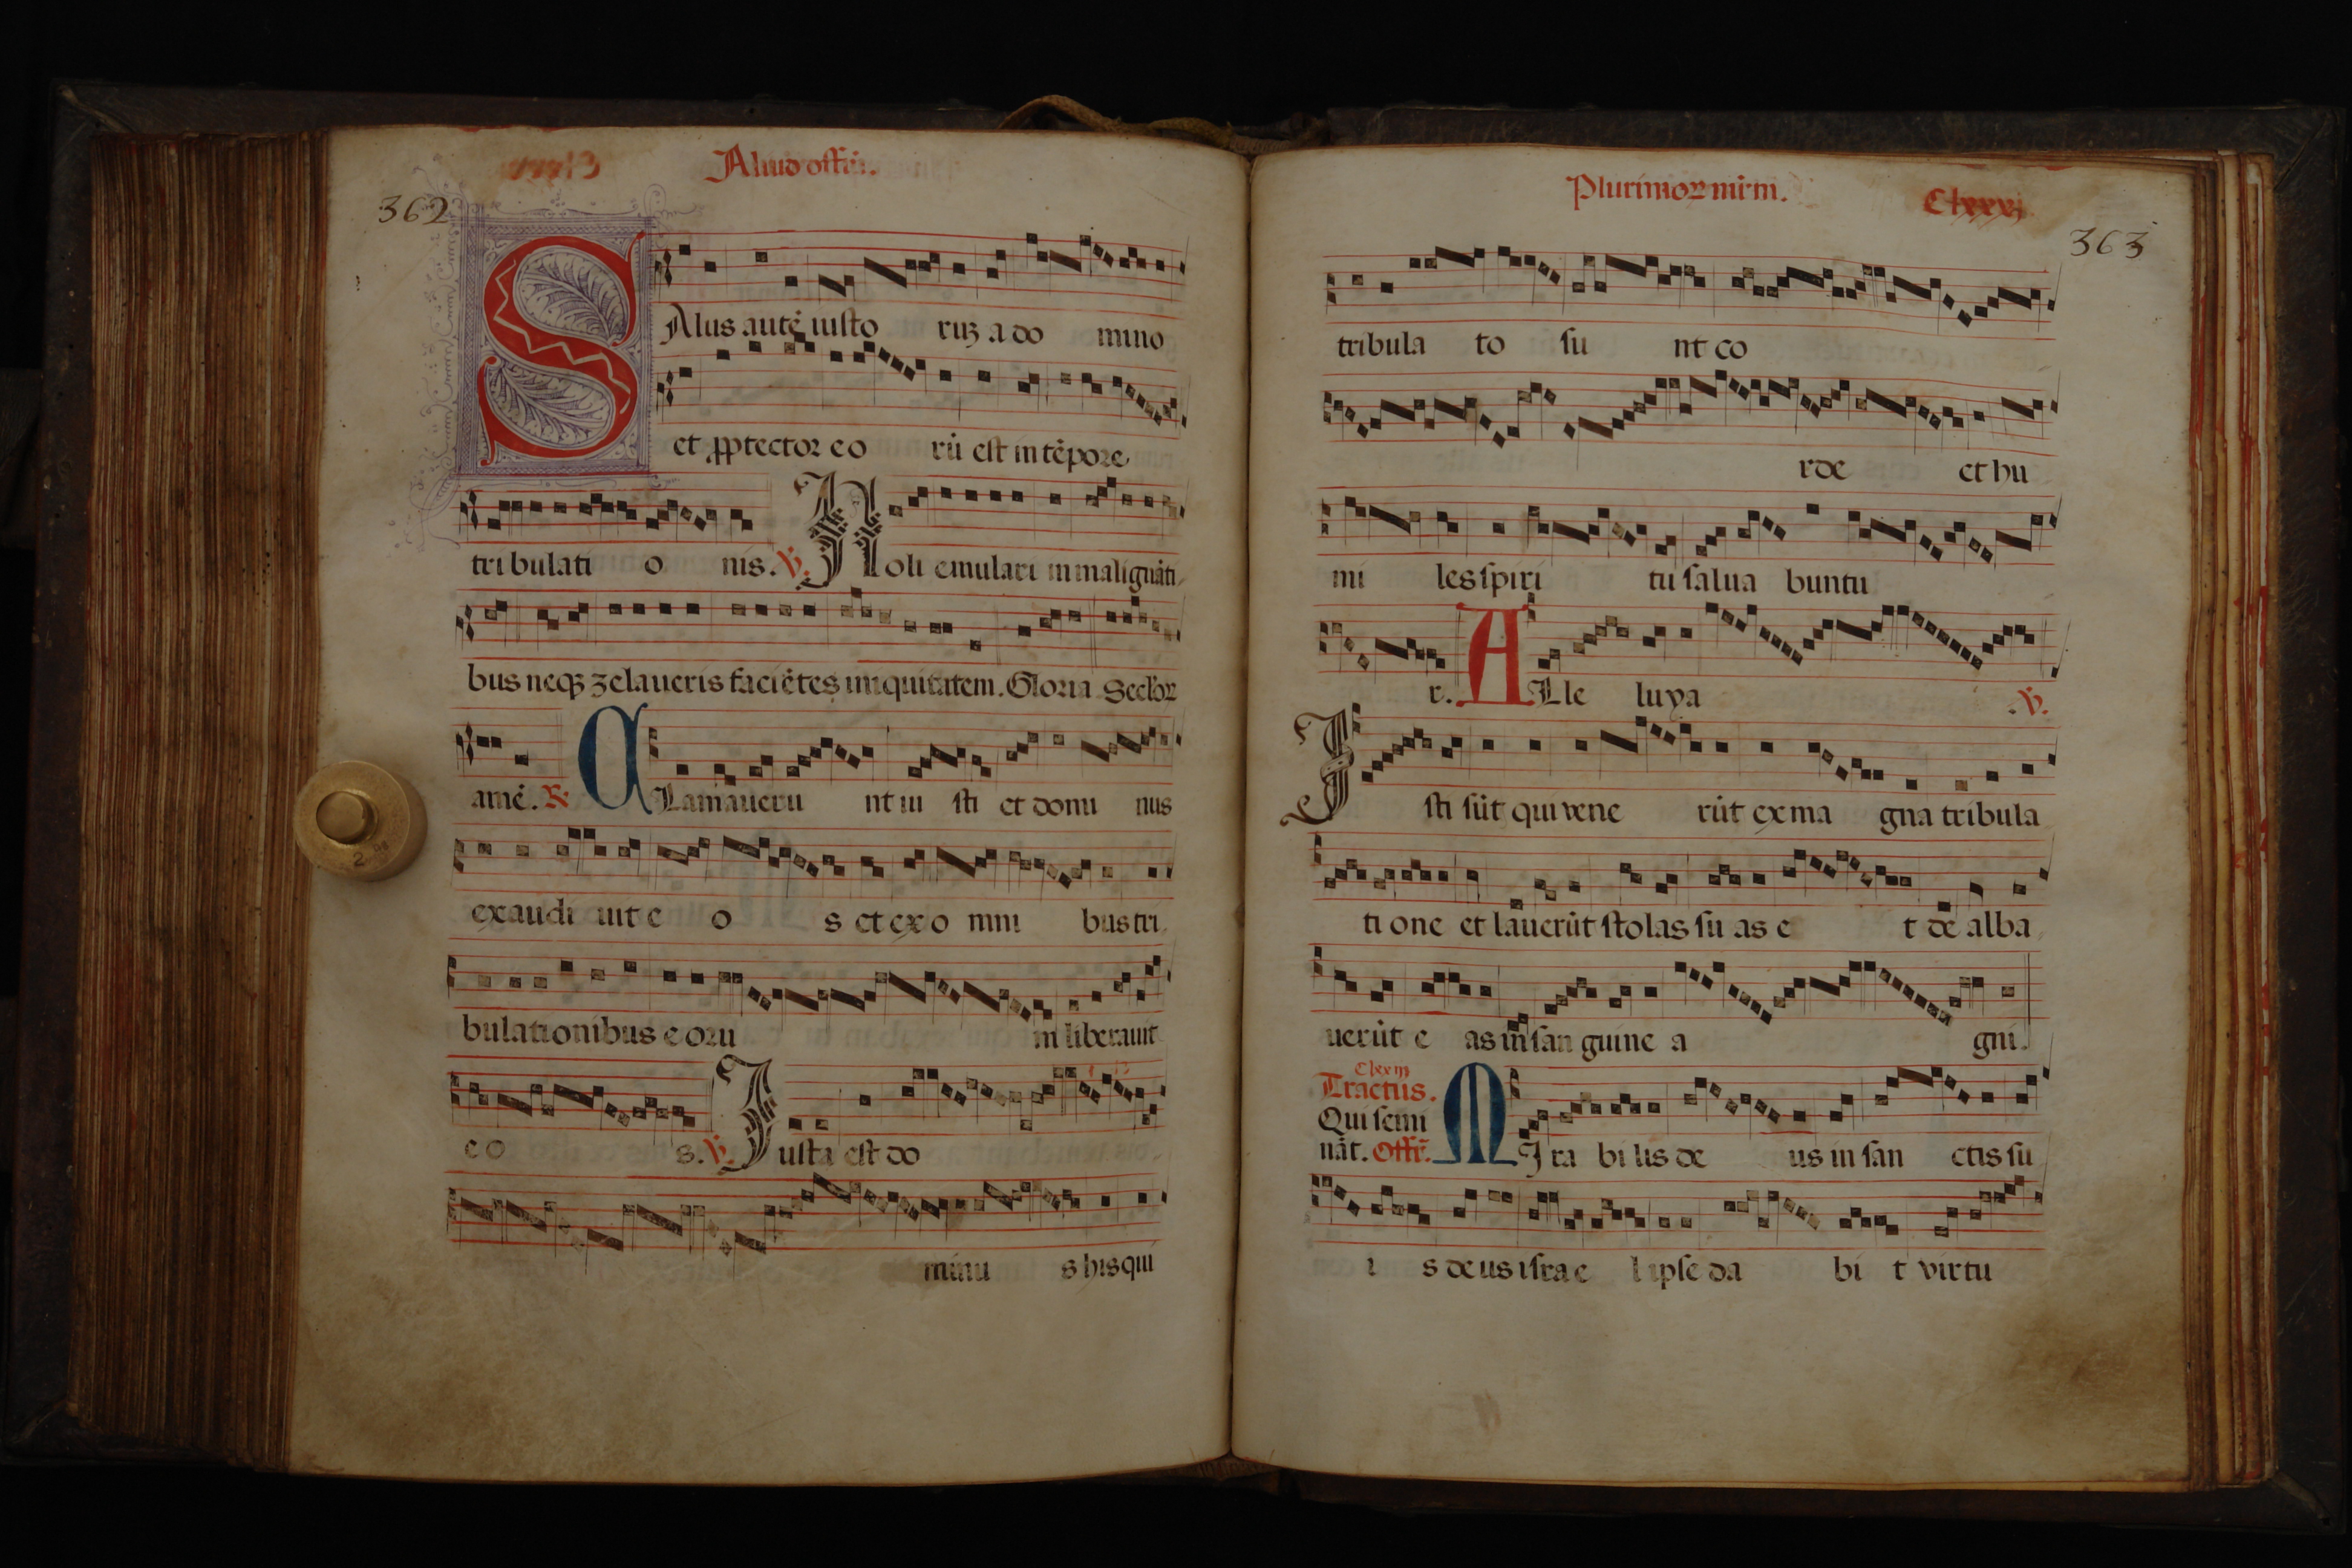 Aliud offiū.
362
SAlus autē iusto ruȝ a do mino
et ꝓptector eo rū est in tēpore
tribulati o nis. ℣. Noli emulari in malignāti
bus neqȝ zelaueris faciētes iniquitatem. Gloria. Seclōꝝ
amē. ℟. CLamaueru nt iu sti et domi nus
exaudi uit e o s et ex o mni bus tri
bulationibus e oru m liberauit
e o s. ℣. Iuxta est do
minu s his qui
Plurimoꝝ mr̄m.
Clxxxj
363
tribula to su nt co
rde et hu
mi les spiri tu salua buntu
r. ALle luya .℣.
Isti sūt qui vene rūt ex ma gna tribula
ti one et lauerūt stolas su as e t de alba
uerūt e as in san guine a gni.
Tractus. Clxxiij
Qui semi
nāt. Offr̄. MIra bi lis de us in san ctis su
i s deus israe l ipse da bi t virtu
2